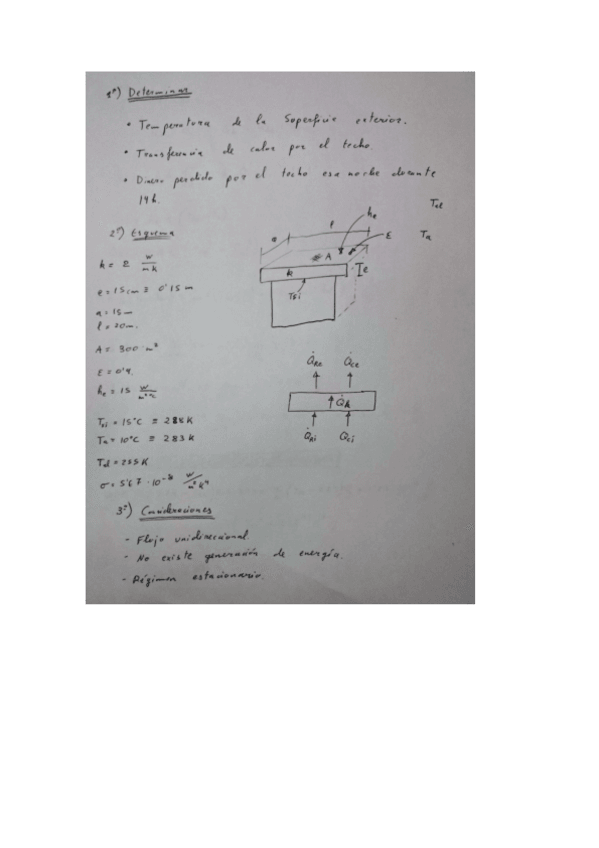 1º) Determinar
• Temperatura de la Superficie exterior.
• Transferencia de calor por el techo.
• Dinero perdido por el techo esa noche durante
14h.
2º) Esquema
k = 2 W/mk
e = 15cm ≡ 0'15 m
a = 15m
l = 20m.
A = 300 m²
ε = 0'9.
he = 15 W/m²ºC
Tsi = 15ºC ≡ 288K
Ta = 10ºC ≡ 283K
Tal = 255K
σ = 5'67·10⁻⁸ W/m²k⁴
a l he Tal
ε Ta
A
k e
Tsi
Q̇Re Q̇Ce
Q̇k
Q̇Ri Q̇Ci
3º) Consideraciones
- Flujo unidireccional.
- No existe generación de energía.
- Régimen estacionario.